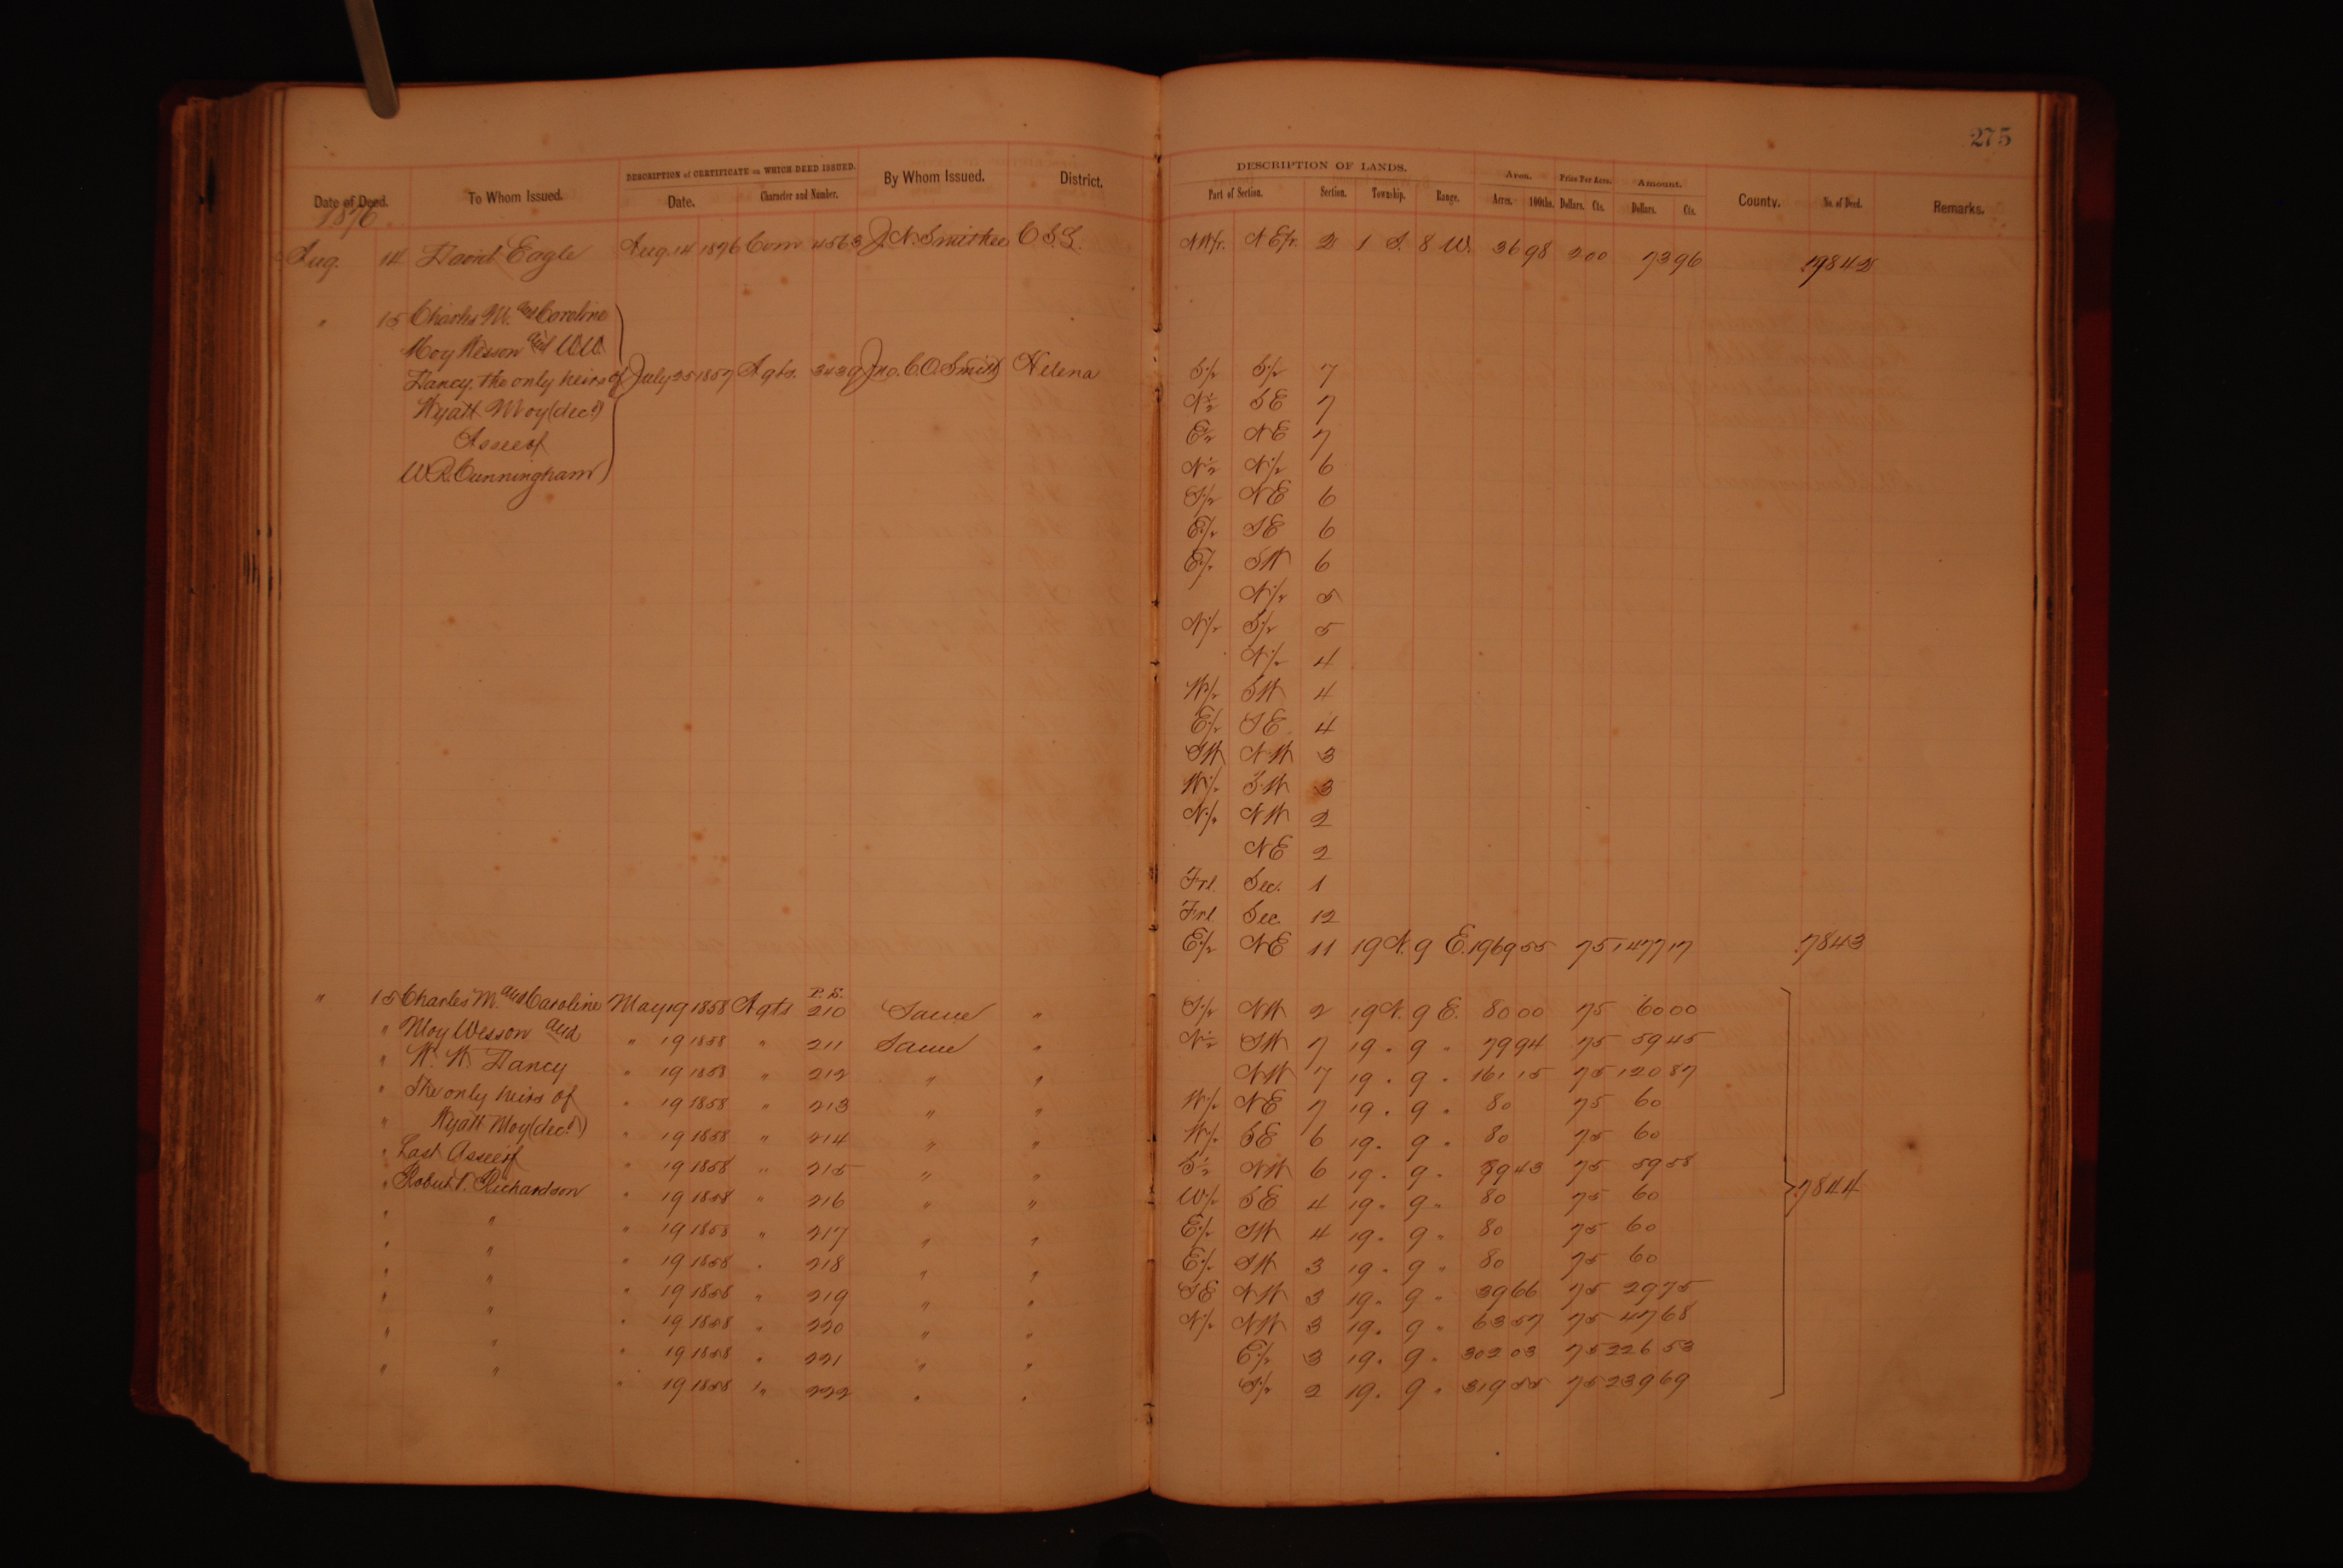 275
DESCRIPTION of CERTIFICATE on WHICH DEED ISSUED. DESCRIPTION OF LANDS. Area. Price Per Acre. Amount.
Date of Deed. To Whom Issued. Date. Character and Number. By Whom Issued. District. Part of Section. Section. Township. Range. Acres. 100ths. Dollars. Cts. Dollars. Cts. County. No. of Deed. Remarks.
1876
Aug. 14 David Eagle Aug. 14 1876 Com 4563 J. N. Smithee C S L. NW fr. NE fr. 2 1 S. 8 W. 36 98 2 00 73 96 7842
" 15 Charles M. and Caroline
Moy Wesson and W.W.
Dancy, the only heirs of July 25 1857 Agts. 3439 Jno. C. O. Smith Helena S ½ S ½ 7
Wyatt Moy (dec'd) N ½ SE 7
Assee of E ½ NE 7
W. R. Cunningham N ½ N ½ 6
S ½ NE 6
E ½ SE 6
E ½ SW 6
N ½ 5
N ½ S ½ 5
N ½ 4
W ½ SW 4
E ½ SE 4
SW NW 3
W ½ SW 3
N ½ NW 2
NE 2
Frl. Sec. 1
Frl. Sec. 12
E ½ NE 11 19 N. 9 E. 1969 55 75 1477 17 7843
" 15 Charles M. and Caroline May 19 1858 Agts P. E. 210 Same " S ½ NW 2 19 N. 9 E. 80 00 75 60 00
" Moy Wesson and " 19 1858 " 211 Same " N ½ SW 7 19 " 9 " 79 94 75 59 45
" W. W. Dancy " 19 1858 " 212 " " NW 7 19 " 9 " 161 15 75 120 87
" The only heirs of " 19 1858 " 213 " " W ½ NE 7 19 " 9 " 80 75 60
" Wyatt Moy (dec'd) " 19 1858 " 214 " " W ½ SE 6 19 " 9 " 80 75 60
" Last Assee of " 19 1858 " 215 " " S ½ NW 6 19 " 9 " 79 43 75 59 58
" Robert T. Richardson " 19 1858 " 216 " " W ½ SE 4 19 " 9 " 80 75 60 7844
" " " 19 1858 " 217 " " E ½ SW 4 19 " 9 " 80 75 60
" " " 19 1858 " 218 " " E ½ SW 3 19 " 9 " 80 75 60
" " " 19 1858 " 219 " " SE NW 3 19 " 9 " 39 66 75 29 75
" " " 19 1858 " 220 " " N ½ NW 3 19 " 9 " 63 57 75 47 68
" " " 19 1858 " 221 " " E ½ 3 19 " 9 " 302 03 75 226 53
" " " 19 1858 " 222 " " S ½ 2 19 " 9 " 319 55 75 239 69